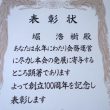 表彰状
堀 浩樹殿
あなたは永年にわたり会務運営
に尽力し本会の発展に寄与する
ところ顕著であります
よって創立100周年を記念し
表彰します